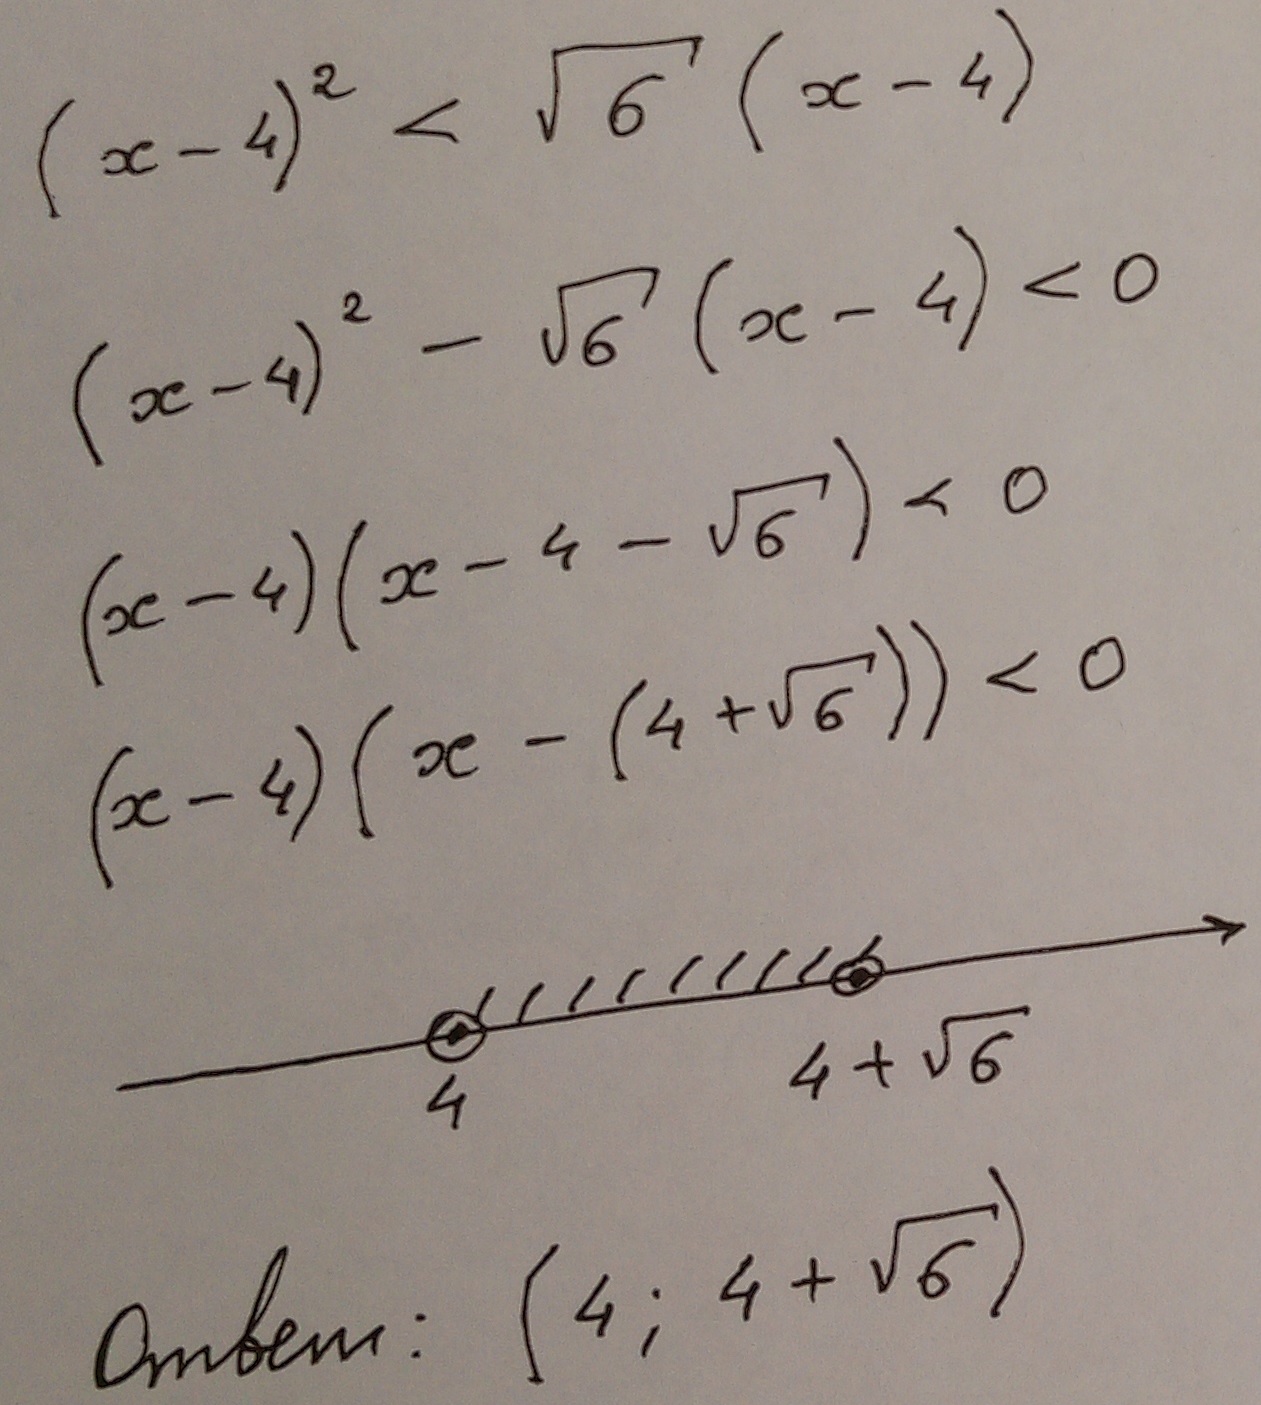 (x-4)² < √6 (x-4)
(x-4)² - √6 (x-4) < 0
(x-4)(x-4-√6) < 0
(x-4)(x-(4+√6)) < 0
4 4+√6
Ответ: (4; 4+√6)